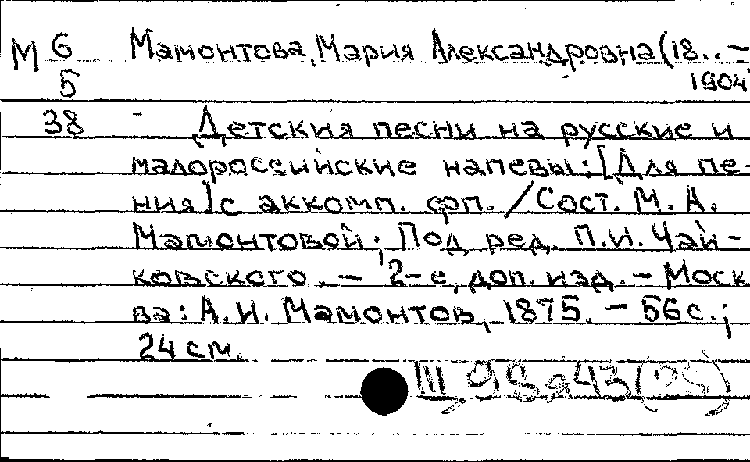 М 6 Мамонтова, Мария Александровна (18..–
5 1904
38 Детския песни на русские и
малороссийские напевы: [Для пе-
ния] с аккомп. фп. / Сост. М. А.
Мамонтовой; Под ред. П. И. Чай-
ковского. – 2-е, доп. изд. – Моск
ва: А. И. Мамонтов, 1875. – 56 с.;
24 см.
III